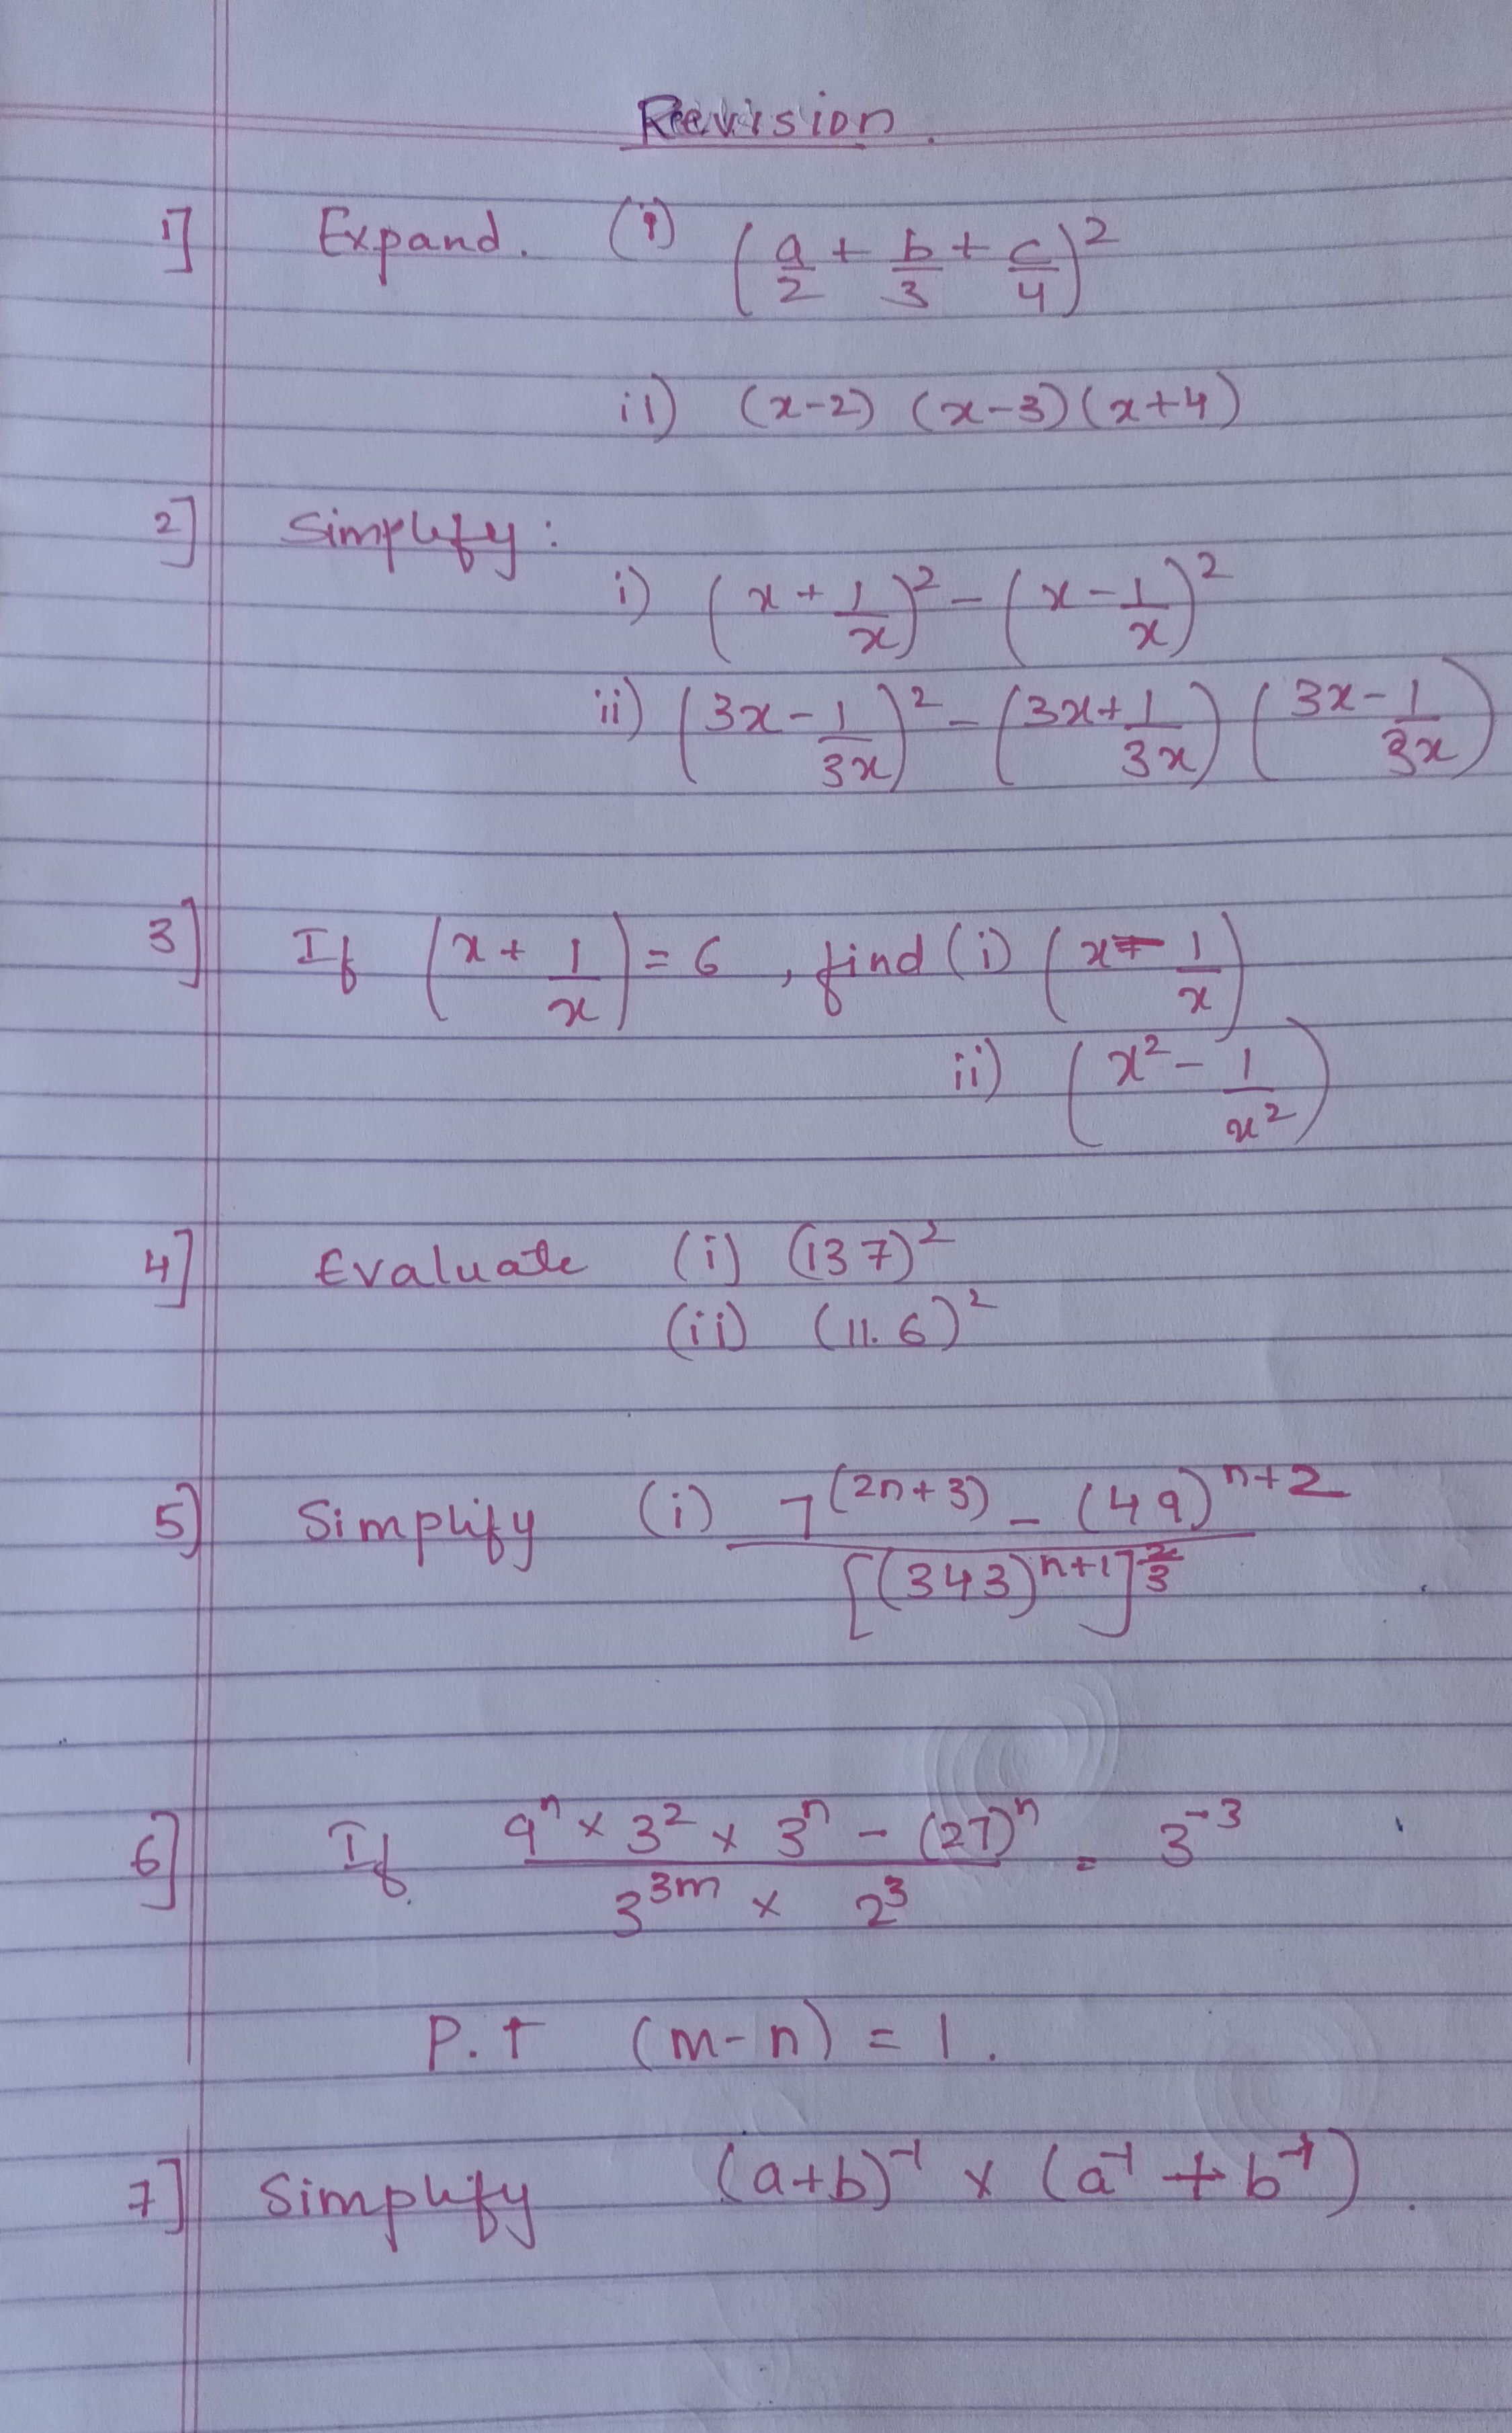 Revision.
1] Expand. (i) (a/2 + b/3 + c/4)²
ii) (x-2) (x-3)(x+4)
2] Simplify:
i) (x + 1/x)² - (x - 1/x)²
ii) (3x - 1/3x)² - (3x + 1/3x) (3x - 1/3x)
3] If (x + 1/x) = 6 , find (i) (x - 1/x)
ii) (x² - 1/x²)
4] Evaluate (i) (137)²
(ii) (11.6)²
5] Simplify (i) 7^(2n+3) - (49)^n+2 / [(343)^n+1]^2/3
6] If 9^n x 3² x 3^n - (27)^n / 3^3m x 2³ = 3^-3
P.T (m-n) = 1.
7] Simplify (a+b)^-1 x (a^-1 + b^-1).